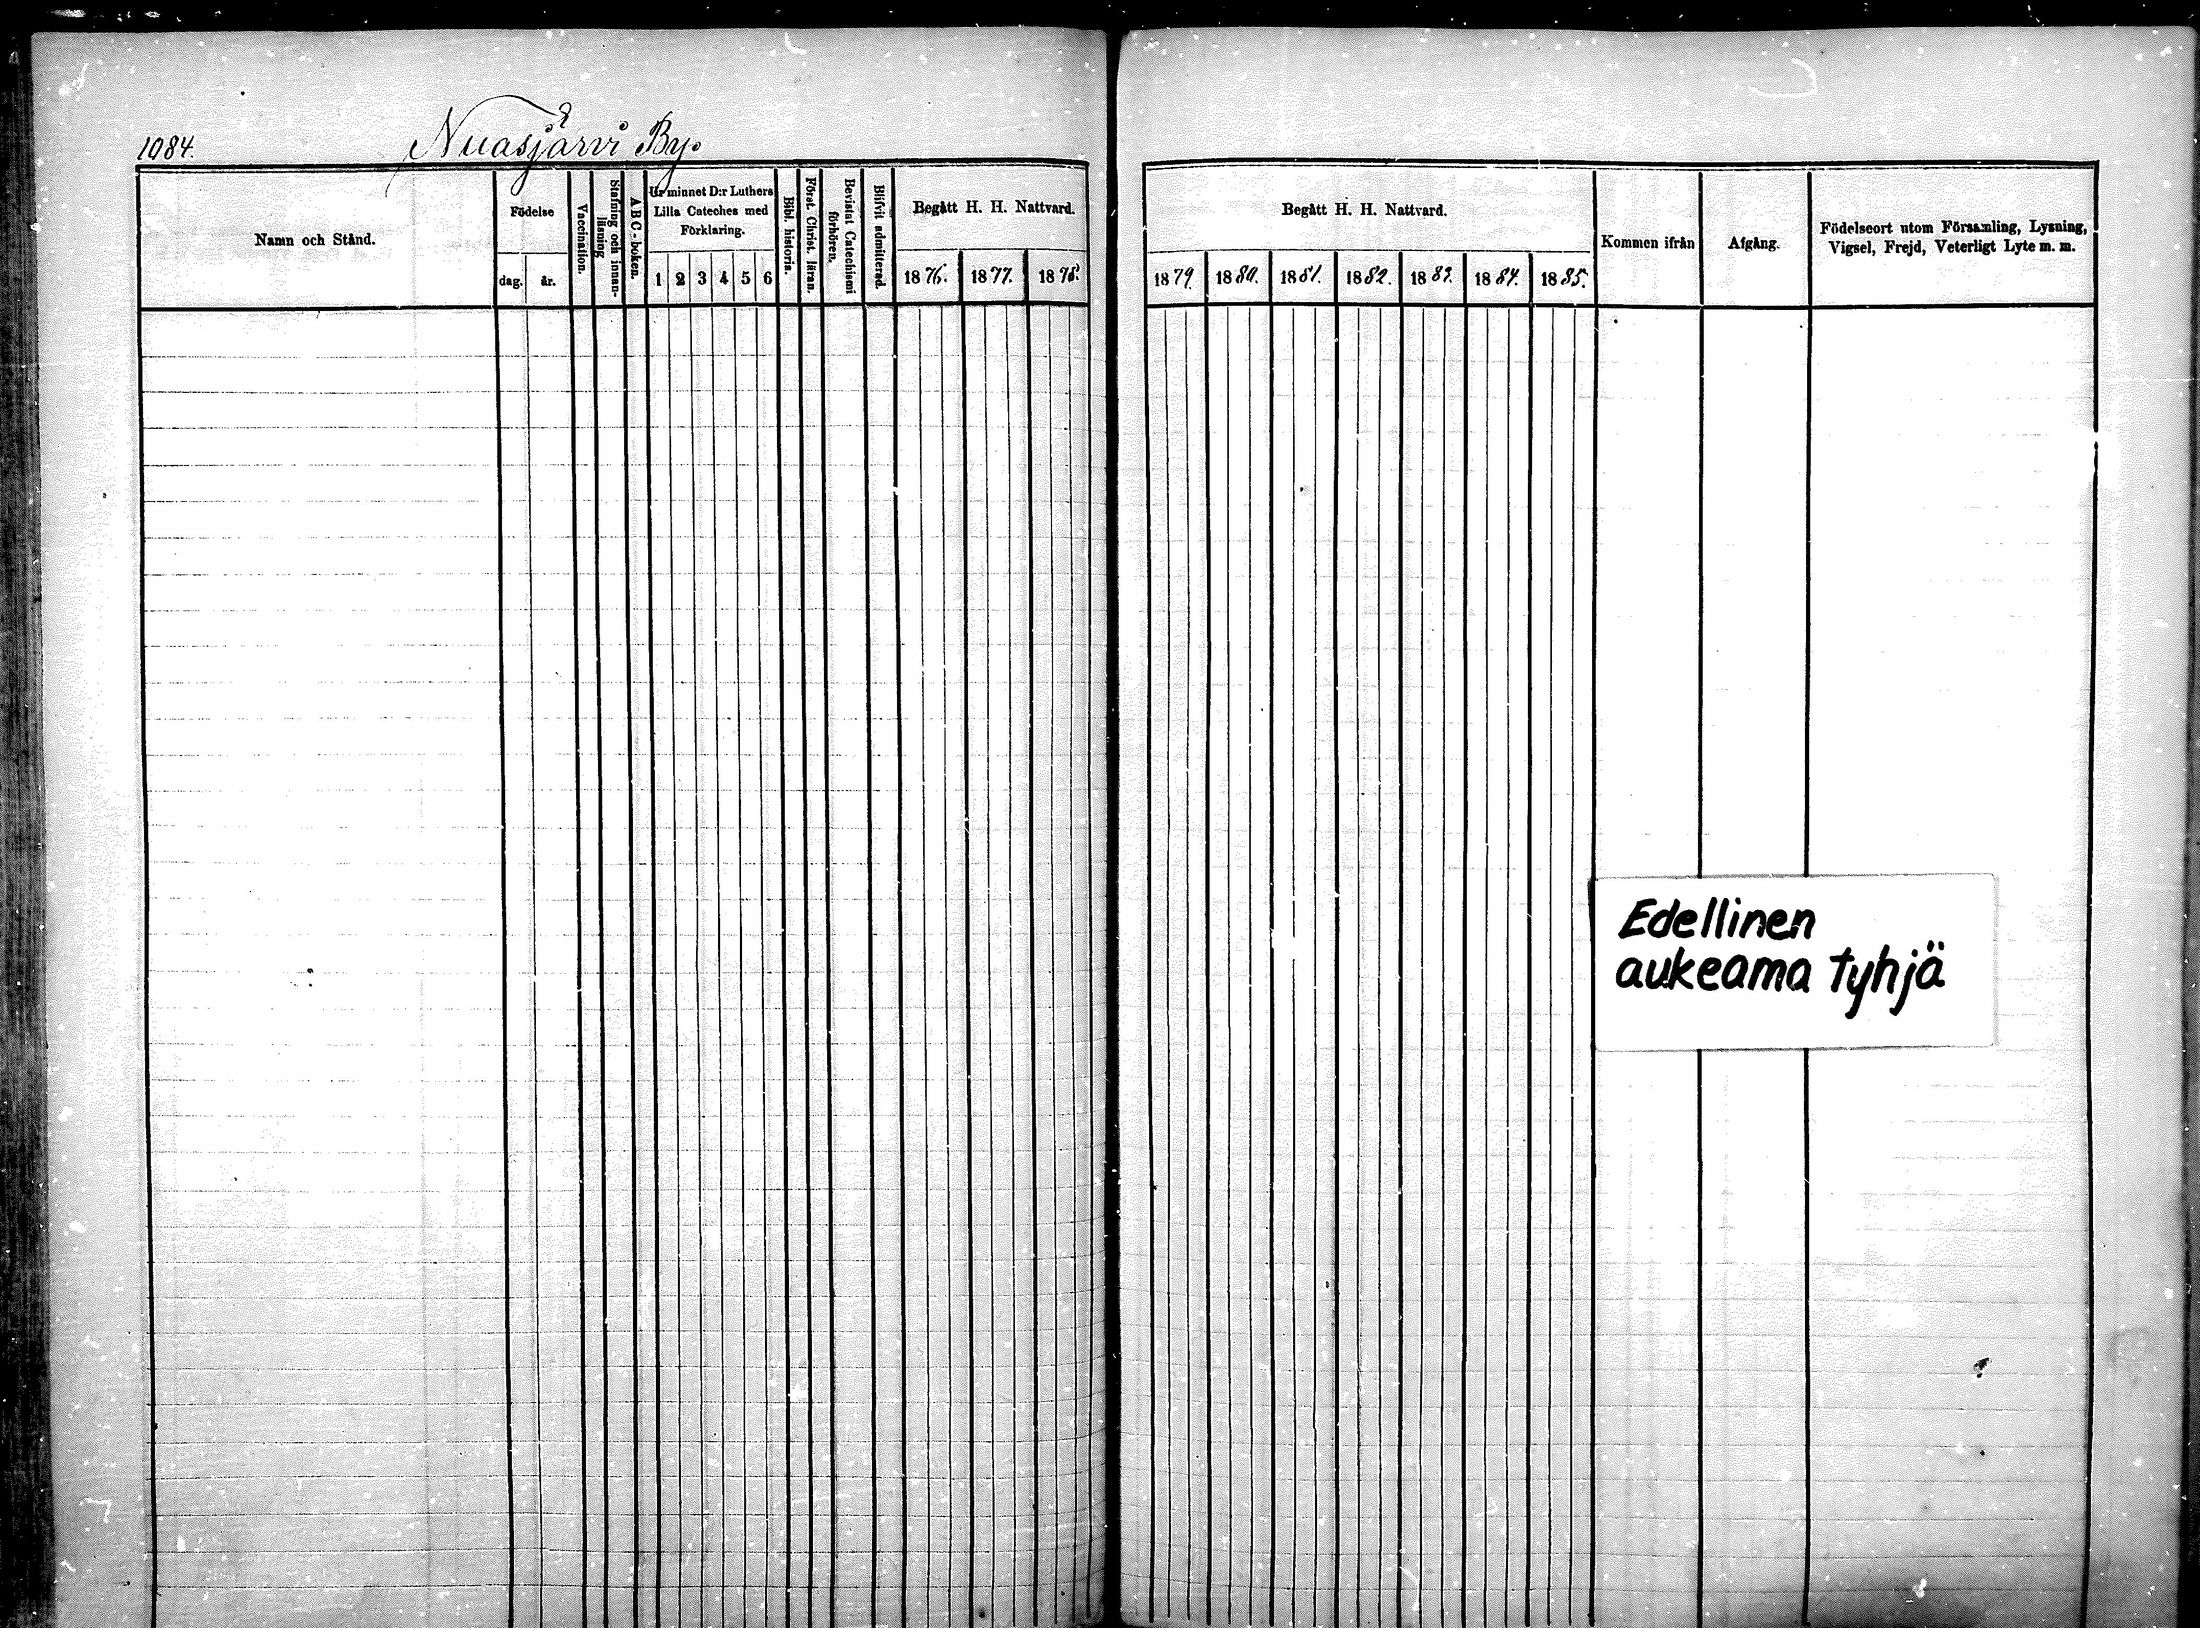 1084.
Nuasjärvi By.
Namn och Stånd.
Födelse
dag.
år.
Vaccination.
Stafning och innan-
läsning
ABC-boken.
Ur minnet D:r Luthers
Lilla Cateches med
Förklaring.
1 2 3 4 5 6
Bibl. historia.
Först. Christ. läran.
Bevistat Catechismi
förhören.
Blifvit admitterad.
Begått H. H. Nattvard.
1876. 1877. 1878.
Begått H. H. Nattvard.
1879. 1880. 1881. 1882. 1883. 1884. 1885.
Kommen ifrån
Afgång.
Födelseort utom Församling, Lysning,
Vigsel, Frejd, Veterligt Lyte m. m.
Edellinen
aukeama tyhjä